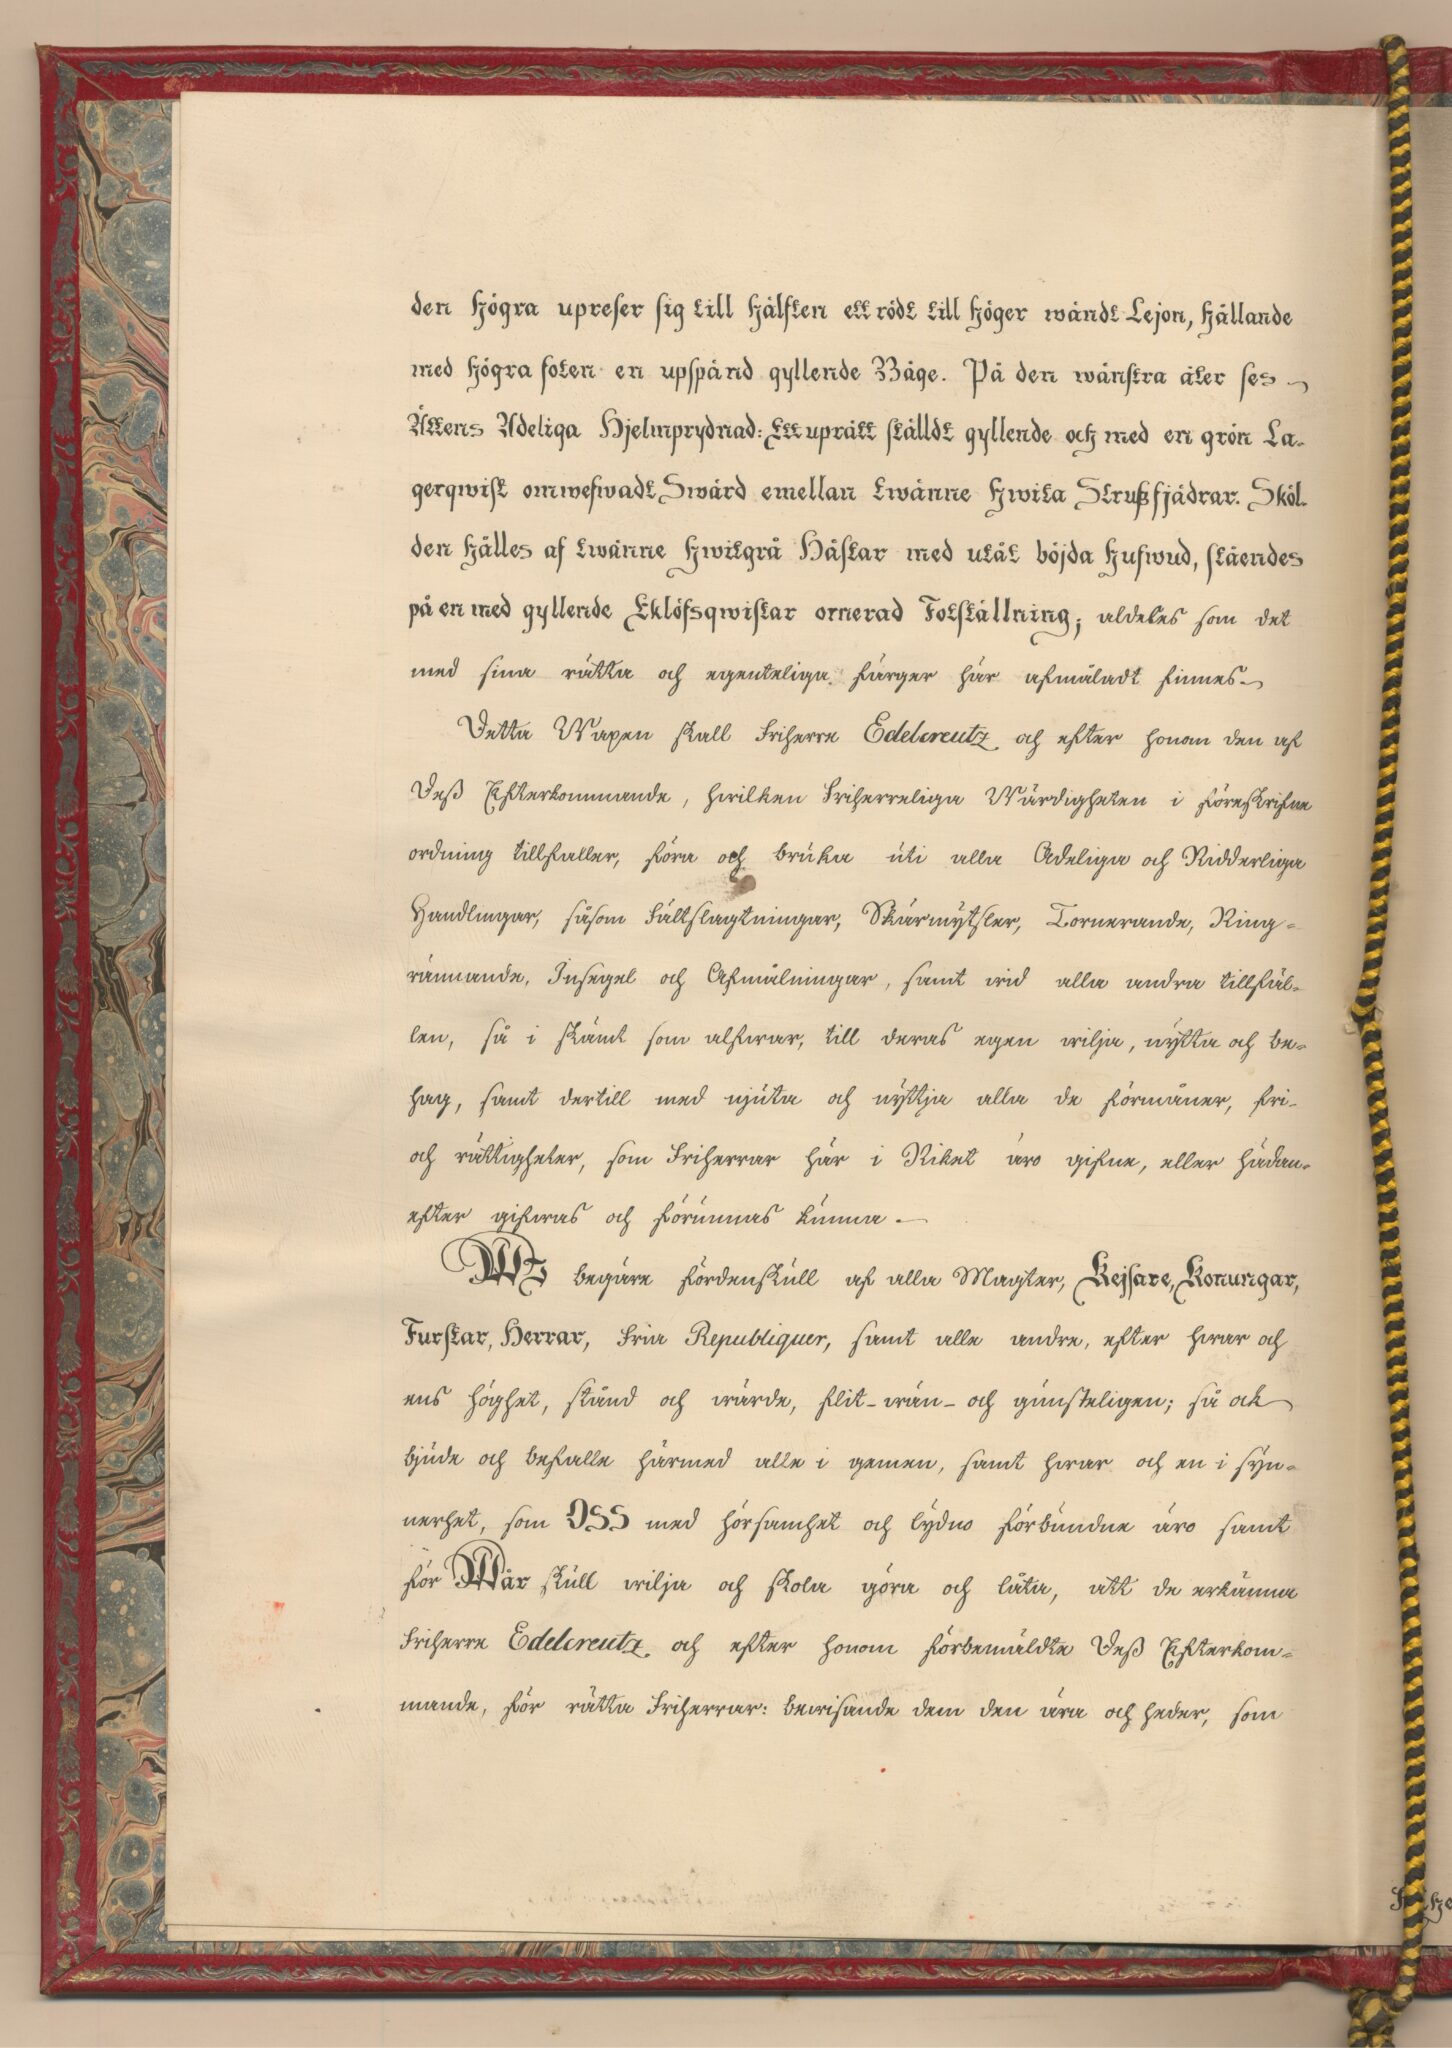 den högra upreser sig till hälften ett rödt till höger wändt Lejon, hållande
med högra foten en upspänd gyllende Båge. På den wänstra åter ses
Ättens Adeliga Hjelmprydnad: Ett uprätt ställdt gyllende och med en grön La-
gerqwist omwefwadt Swärd emellan twänne hwita Strußfjädrar. Sköl-
den hålles af twänne hwitgrå Hästar med utåt böjda hufwud, ståendes
på en med gyllende Eklöfsqwistar ornerad Fotställning; aldeles som det
med sina rätta och egenteliga färger här afmåladt finnes.
Detta Wapen skall Friherre Edelcreutz och efter honom den af
Deß Efterkommande, hwilken Friherreliga Wärdigheten i föreskrifne
ordning tillfaller, föra och bruka uti alla Adeliga och Ridderliga
Handlingar, såsom Fältslagtningar, Skärmytsler, Tornerande, Ring-
rännande, Insegel och Afmålningar, samt wid alla andra tillfäl-
len, så i skämt som alfwar, till deras egen wilja, nytta och be-
hag, samt dertill med njuta och nyttja alla de förmåner, fri-
och rättigheter, som Friherrar här i Riket äro gifne, eller hädan-
efter gifwas och förunnas kunna.
WI begäre fördenskull af alla Magter, Kejsare, Konungar,
Furstar, Herrar, Fria Republiquer, samt alle andre, efter hwar och
ens höghet, stånd och wärde, flit- wän- och gunsteligen; så ock
bjude och befalle härmed alle i gemen, samt hwar och en i syn-
nerhet, som OSS med hörsamhet och lydno förbundne äro samt
för Wår skull wilja och skola göra och låta, att de erkänna
Friherre Edelcreutz och efter honom förbemäldte Deß Efterkom-
mande, för rätta Friherrar: bewisande dem den ära och heder, som